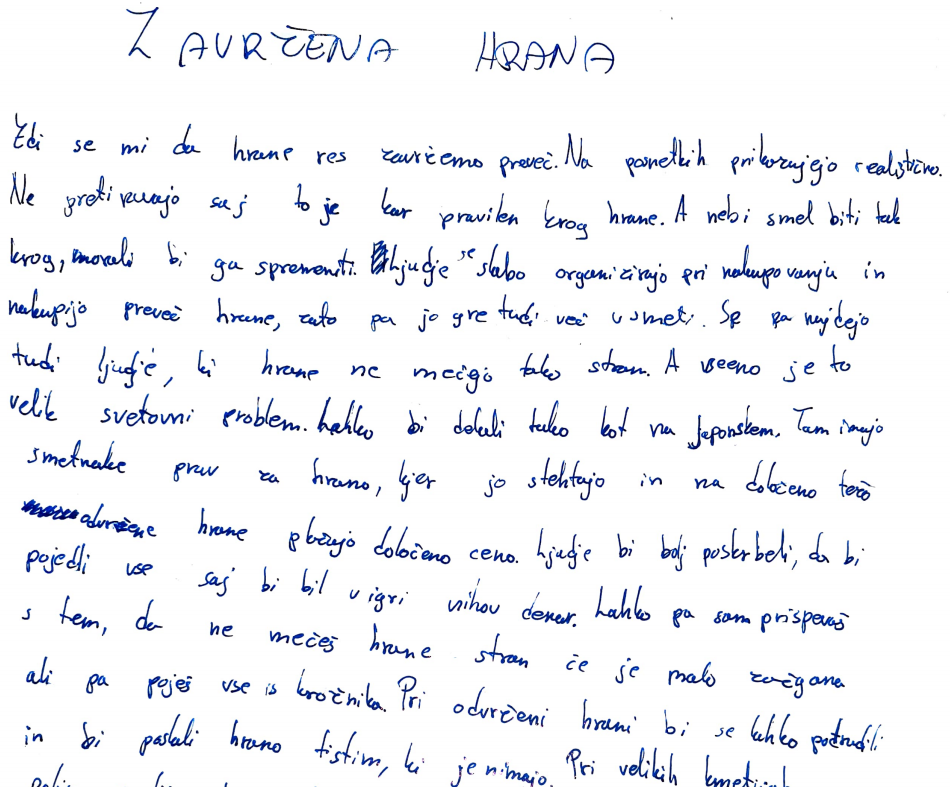 ZAVRŽENA HRANA
Zdi se mi da hrane res zavržemo preveč. Na posnetkih prikazujejo realistično.
Ne pretiravajo saj to je kar pravilen krog hrane. A nebi smel biti tak
krog, morali bi ga spremeniti. Ljudje se slabo organizirajo pri nakupovanju in
nakupijo preveč hrane, zato pa jo gre tudi več v smeti. Se pa najdejo
tudi ljudje, ki hrane ne mečejo tako stran. A vseeno je to
velik svetovni problem. Lahko bi delali tako kot na Japonskem. Tam imajo
smetnake prav za hrano, kjer jo stehtajo in na določeno težo
odvržene hrane plačajo določeno ceno. Ljudje bi bolj poskrbeli, da bi
pojedli vse saj bi bil v igri nihov denar. Lahko pa sam prispevaš
s tem, da ne mečeš hrane stran če je malo zažgana
ali pa poješ vse is krožnika. Pri odvrženi hrani bi se lahko potrudili
in bi poslali hrano tistim, ki je nimajo. Pri velikih